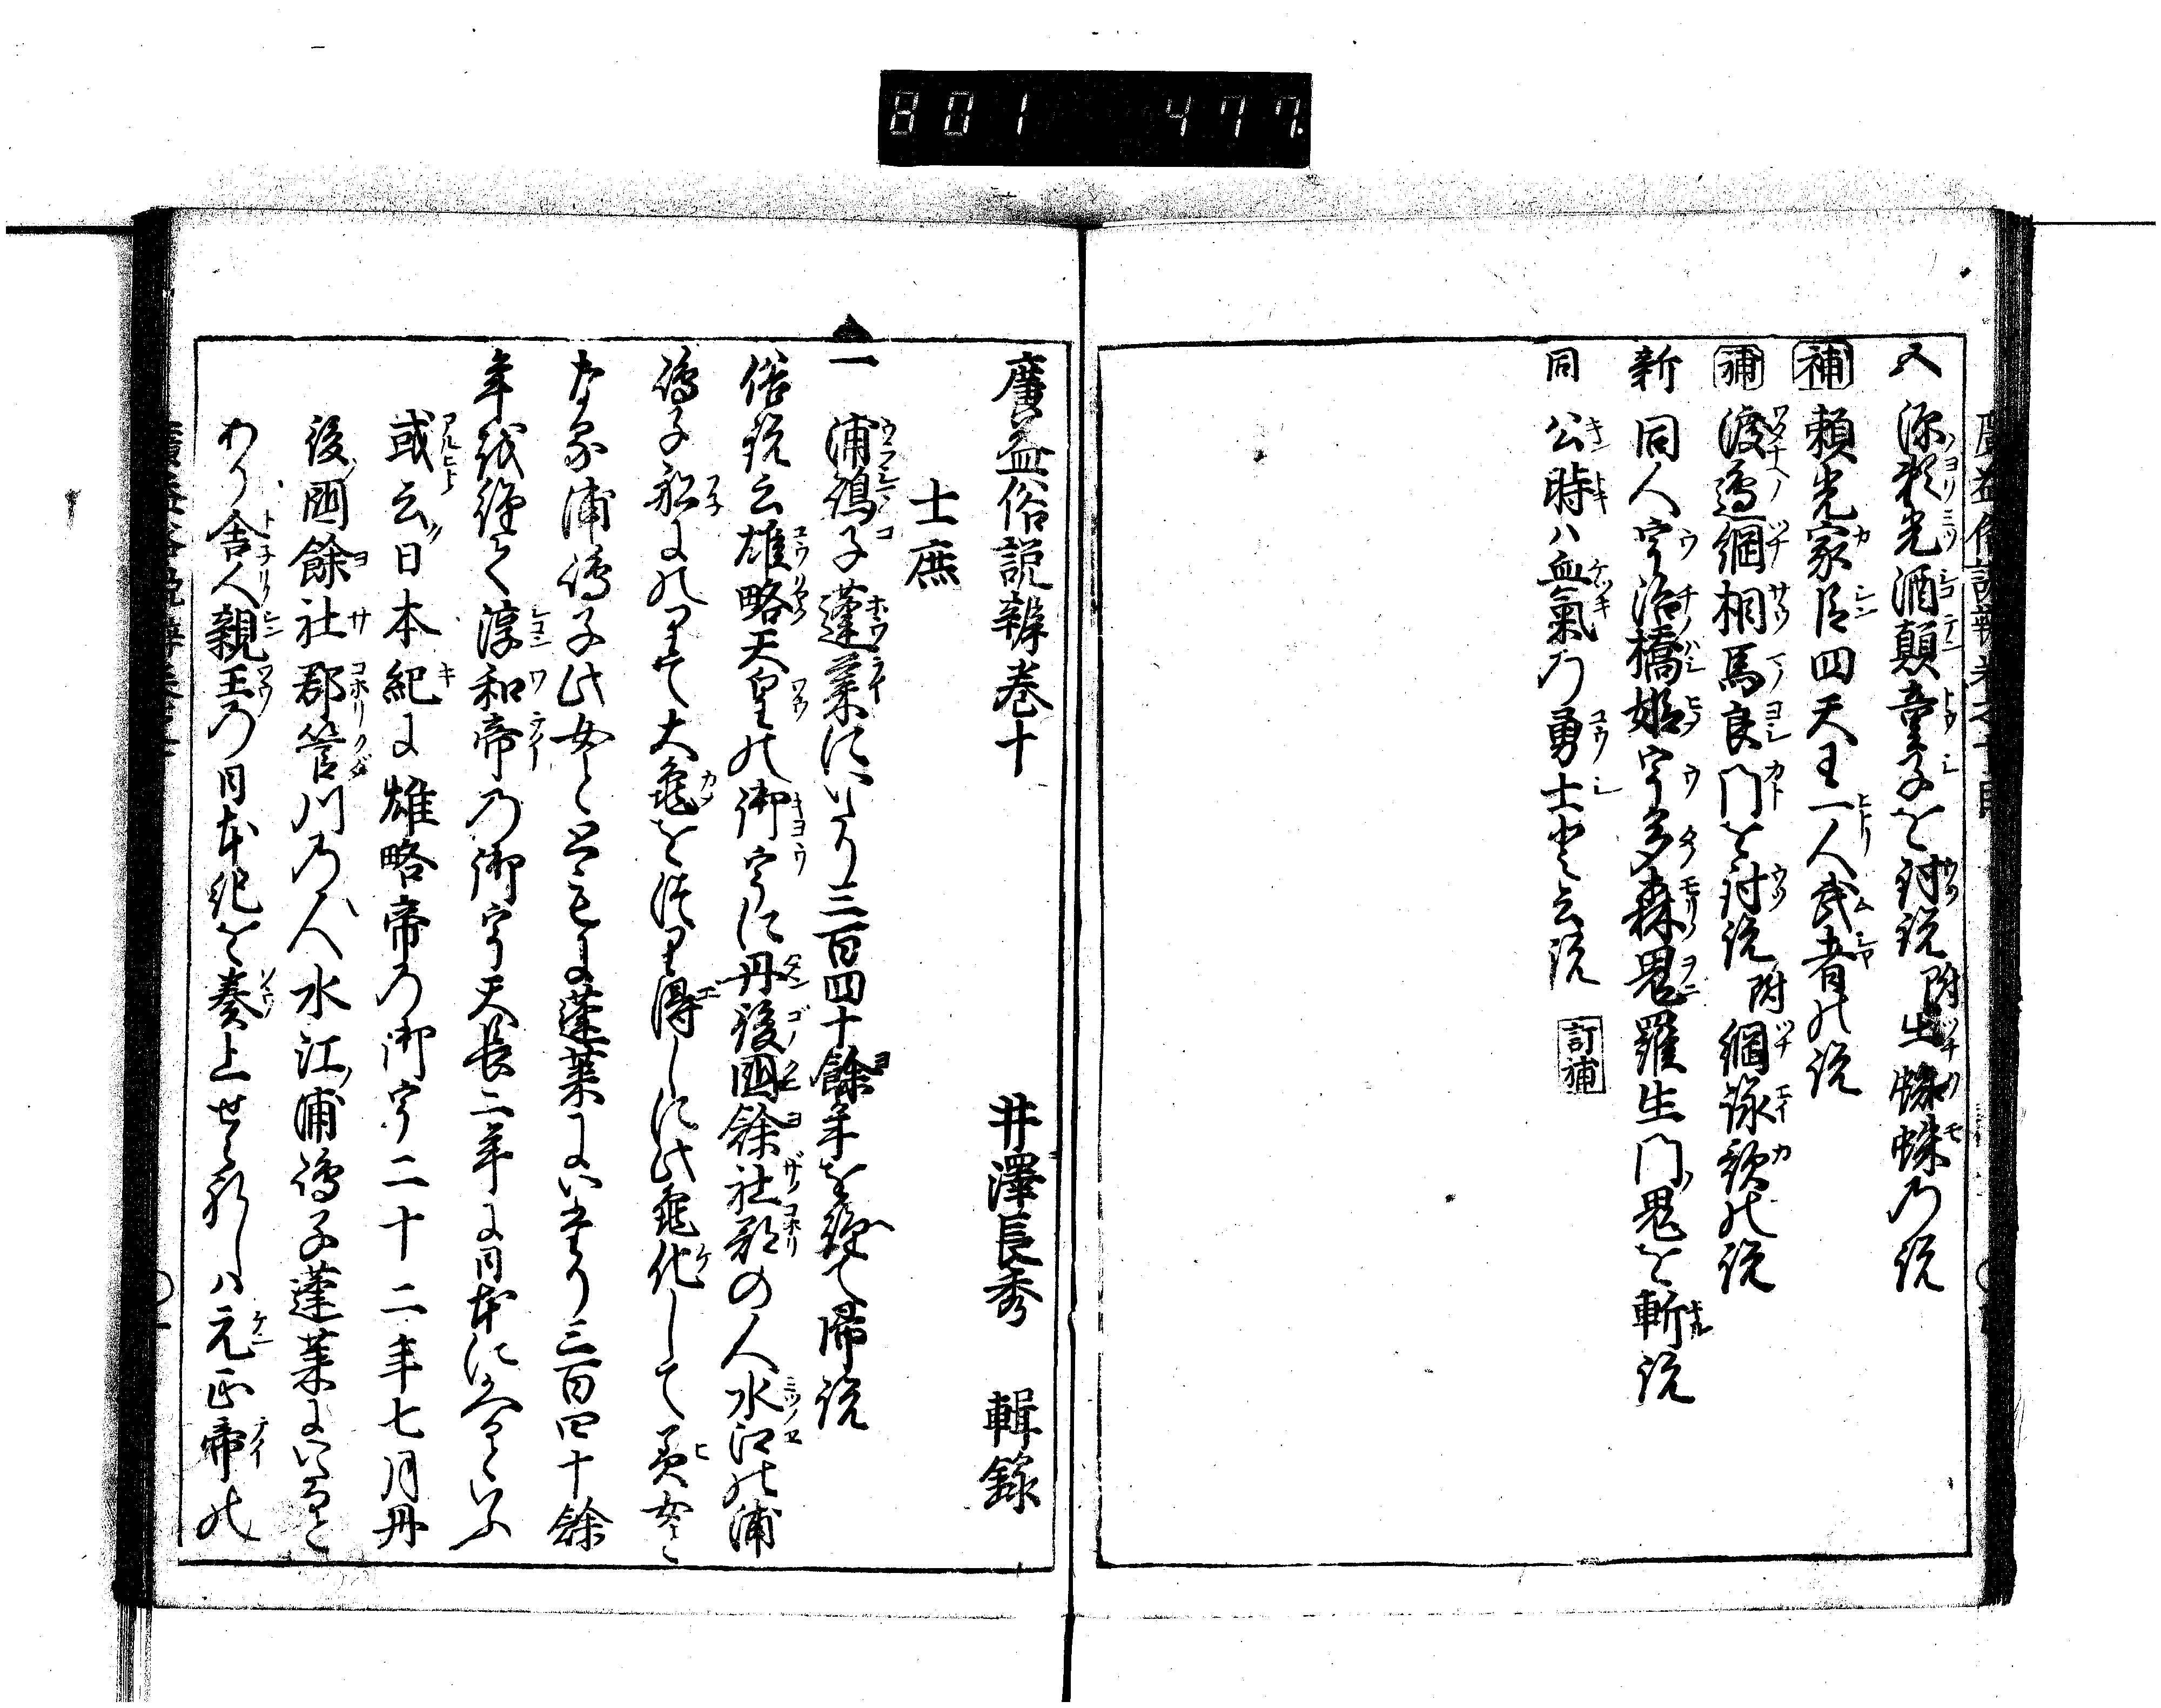 801 477
五 源頼光酒顛童子を討説 附土蜘蛛乃説
補 頼光家臣四天王一人武者の説
補 渡邉綱相馬良門を討説 附綱詠歌の説
新 同人宇治橋姫宇多森鬼羅生門鬼を斬説
同 公時ハ血氣乃勇士と云説 訂補
廣益俗説辨巻十
井澤長秀 輯録
士庶
一 浦嶋子蓬莱にいたり三百四十餘年を経て帰説
俗説云雄略天皇の御宇に丹後國餘社郡の人水江の浦
嶋子船にのりて大亀を釣り得しに此亀化して美女と
なる浦嶋子此女とともに蓬莱にいたり三百四十餘
年を経て淳和帝乃御宇天長二年に日本に皈るといふ
或云日本紀に雄略帝乃御宇二十二年七月丹
後國餘社郡筥川乃人水江浦嶋子蓬莱にいると
あり舎人親王乃日本紀を奏上せられしハ元正帝の